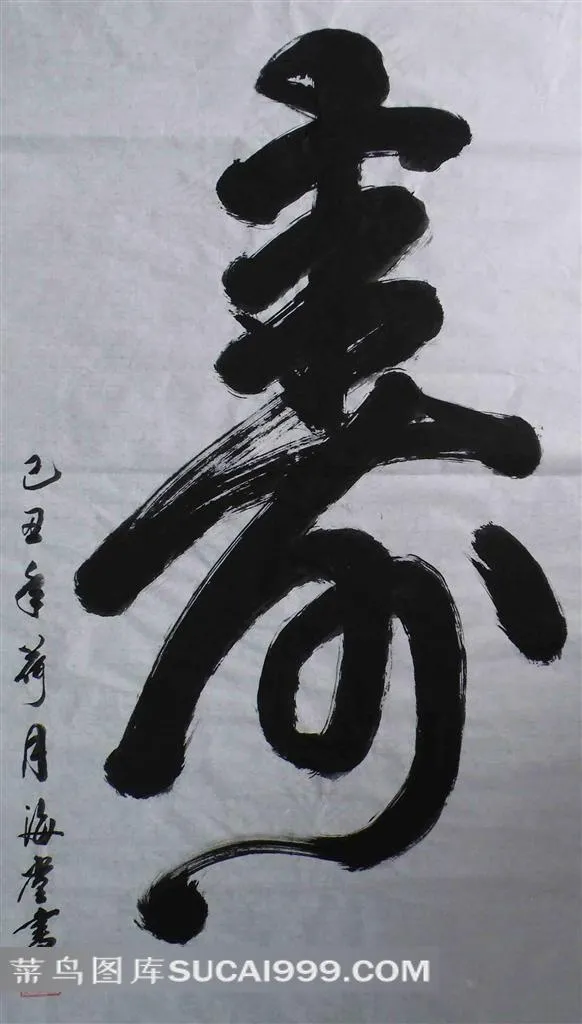 寿
己丑年荷月海堂書
菜鸟图库SUCAI999.COM